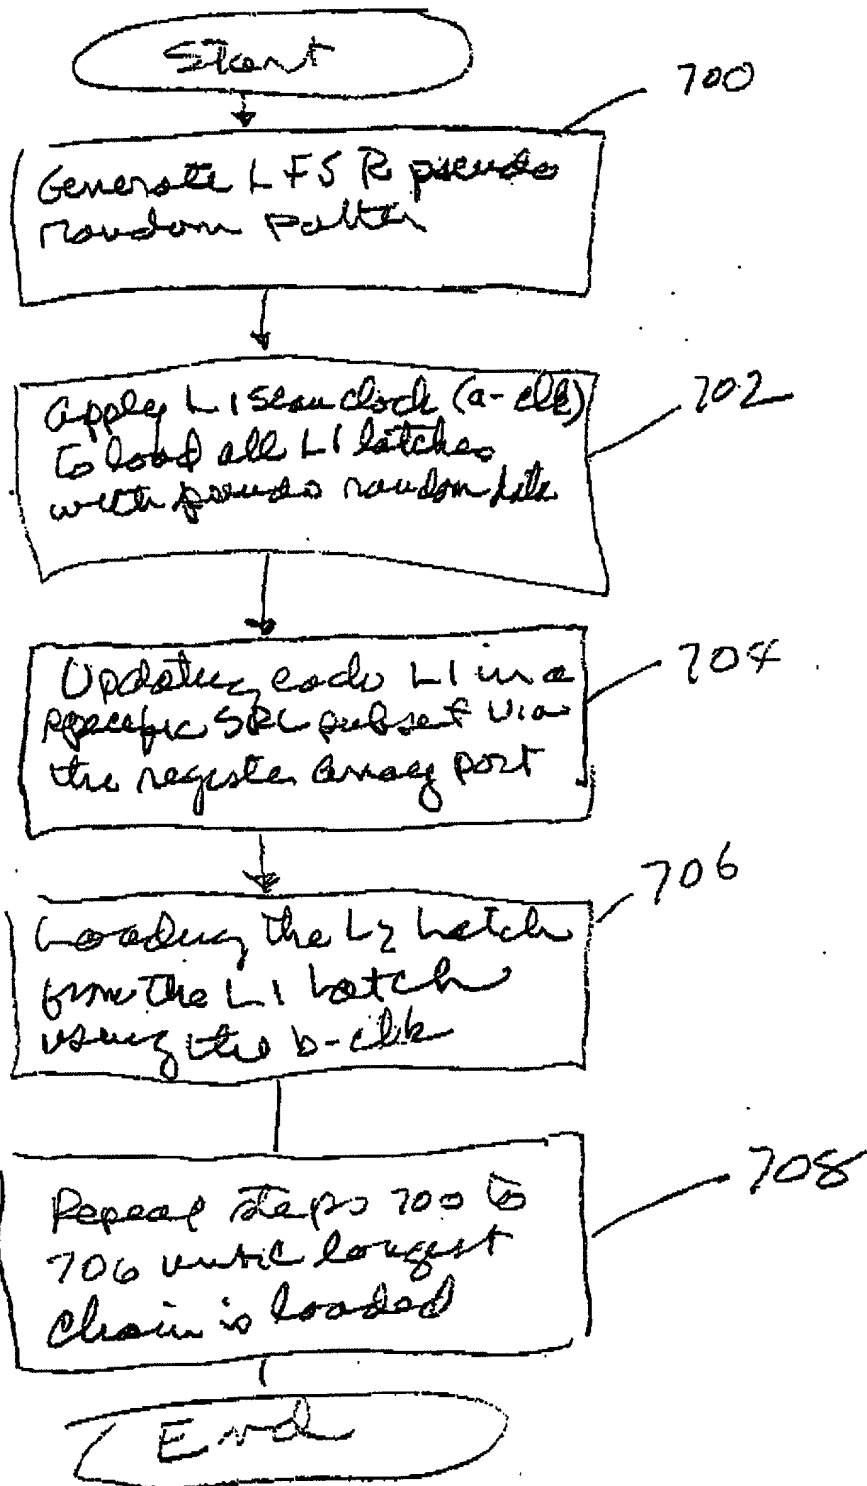 Start
700
Generate LFSR pseudo
random patter
Apply L1 scan clock (a-clk)
702
to load all L1 latches
with pseudo random data
Updating each L1 in a
704
specific SRL subset via
the register array port
706
Loading the L2 Latch
from the L1 Latch
using the b-clk
708
Repeat steps 700 to
706 until longest
chain is loaded
End